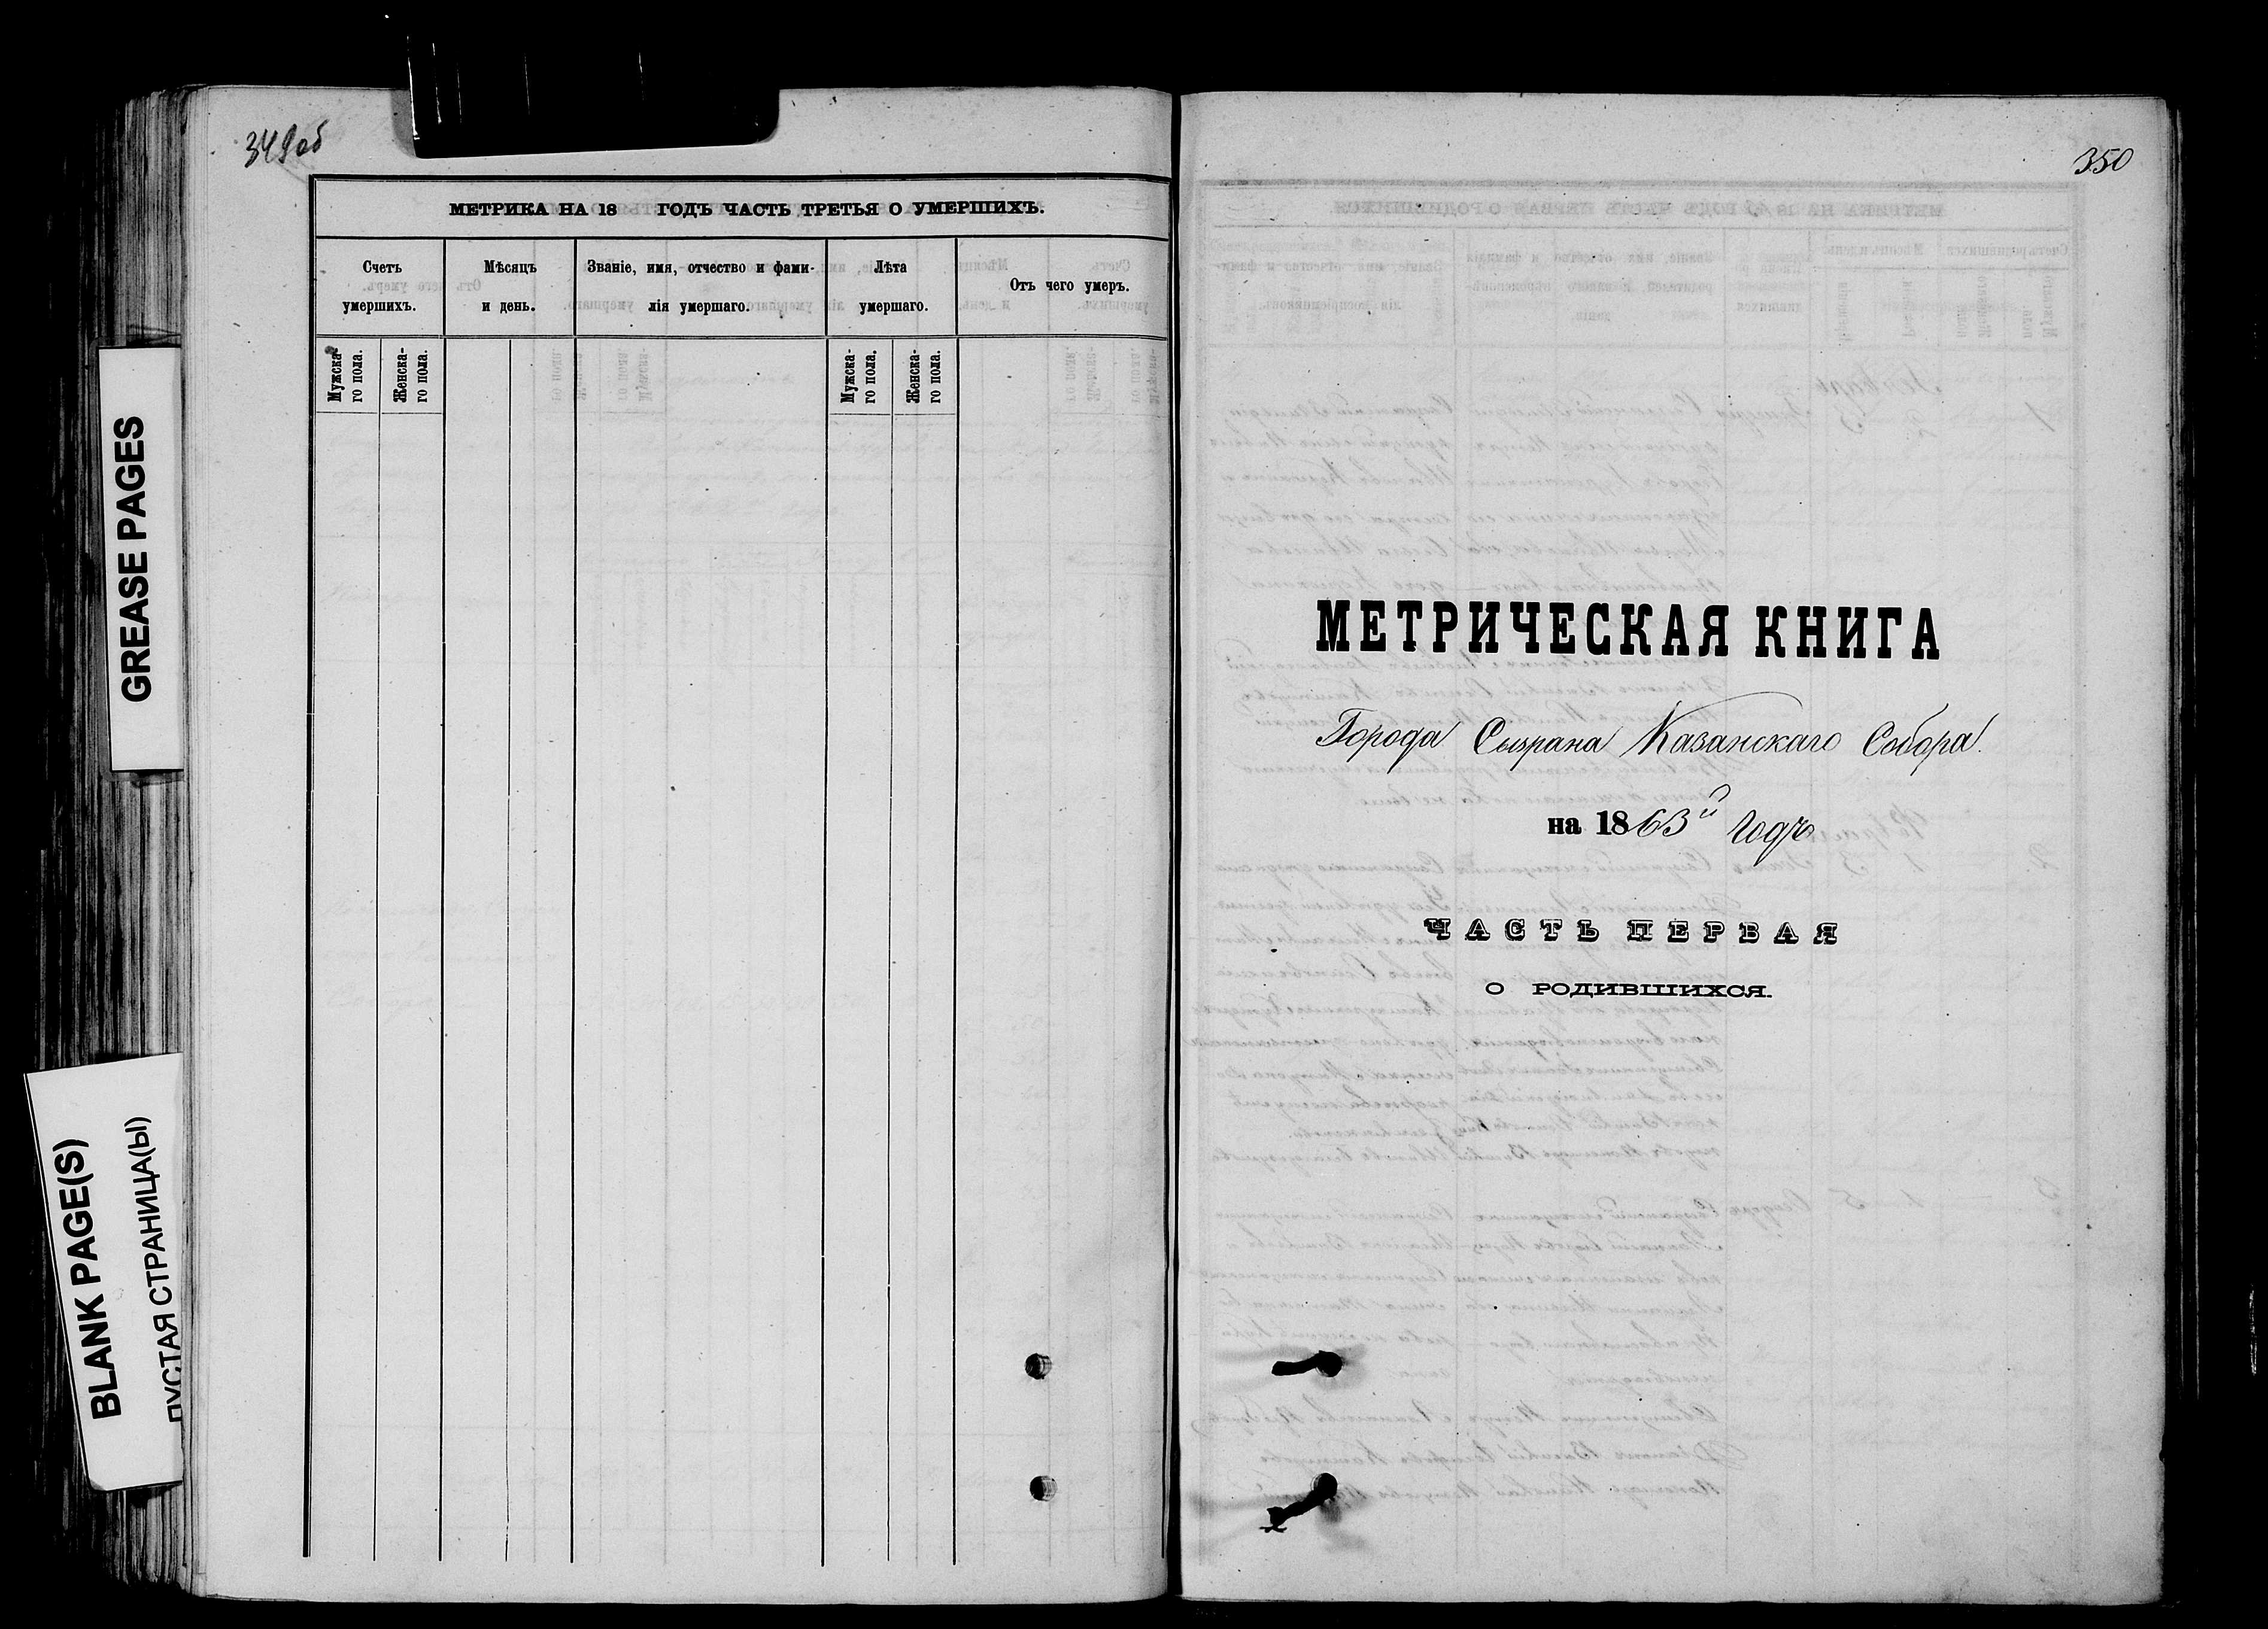 349об
МЕТРИКА НА 18 ГОДЪ ЧАСТЬ ТРЕТЬЯ О УМЕРШИХЪ.
Счетъ умершихъ.
Мѣсяцъ и день.
Званіе, имя, отчество и фами-
лія умершаго.
Лѣта умершаго.
Отъ чего умеръ.
Мужска-
го пола.
Женска-
го пола.
Мужска-
го пола.
Женска-
го пола.
GREASE PAGES
BLANK PAGE(S)
ПУСТАЯ СТРАНИЦА(Ы)
350
МЕТРИЧЕСКАЯ КНИГА
Города Сызрана Казанскаго Собора.
на 1863й годъ
ЧАСТЬ ПЕРВАЯ
О РОДИВШИХСЯ.